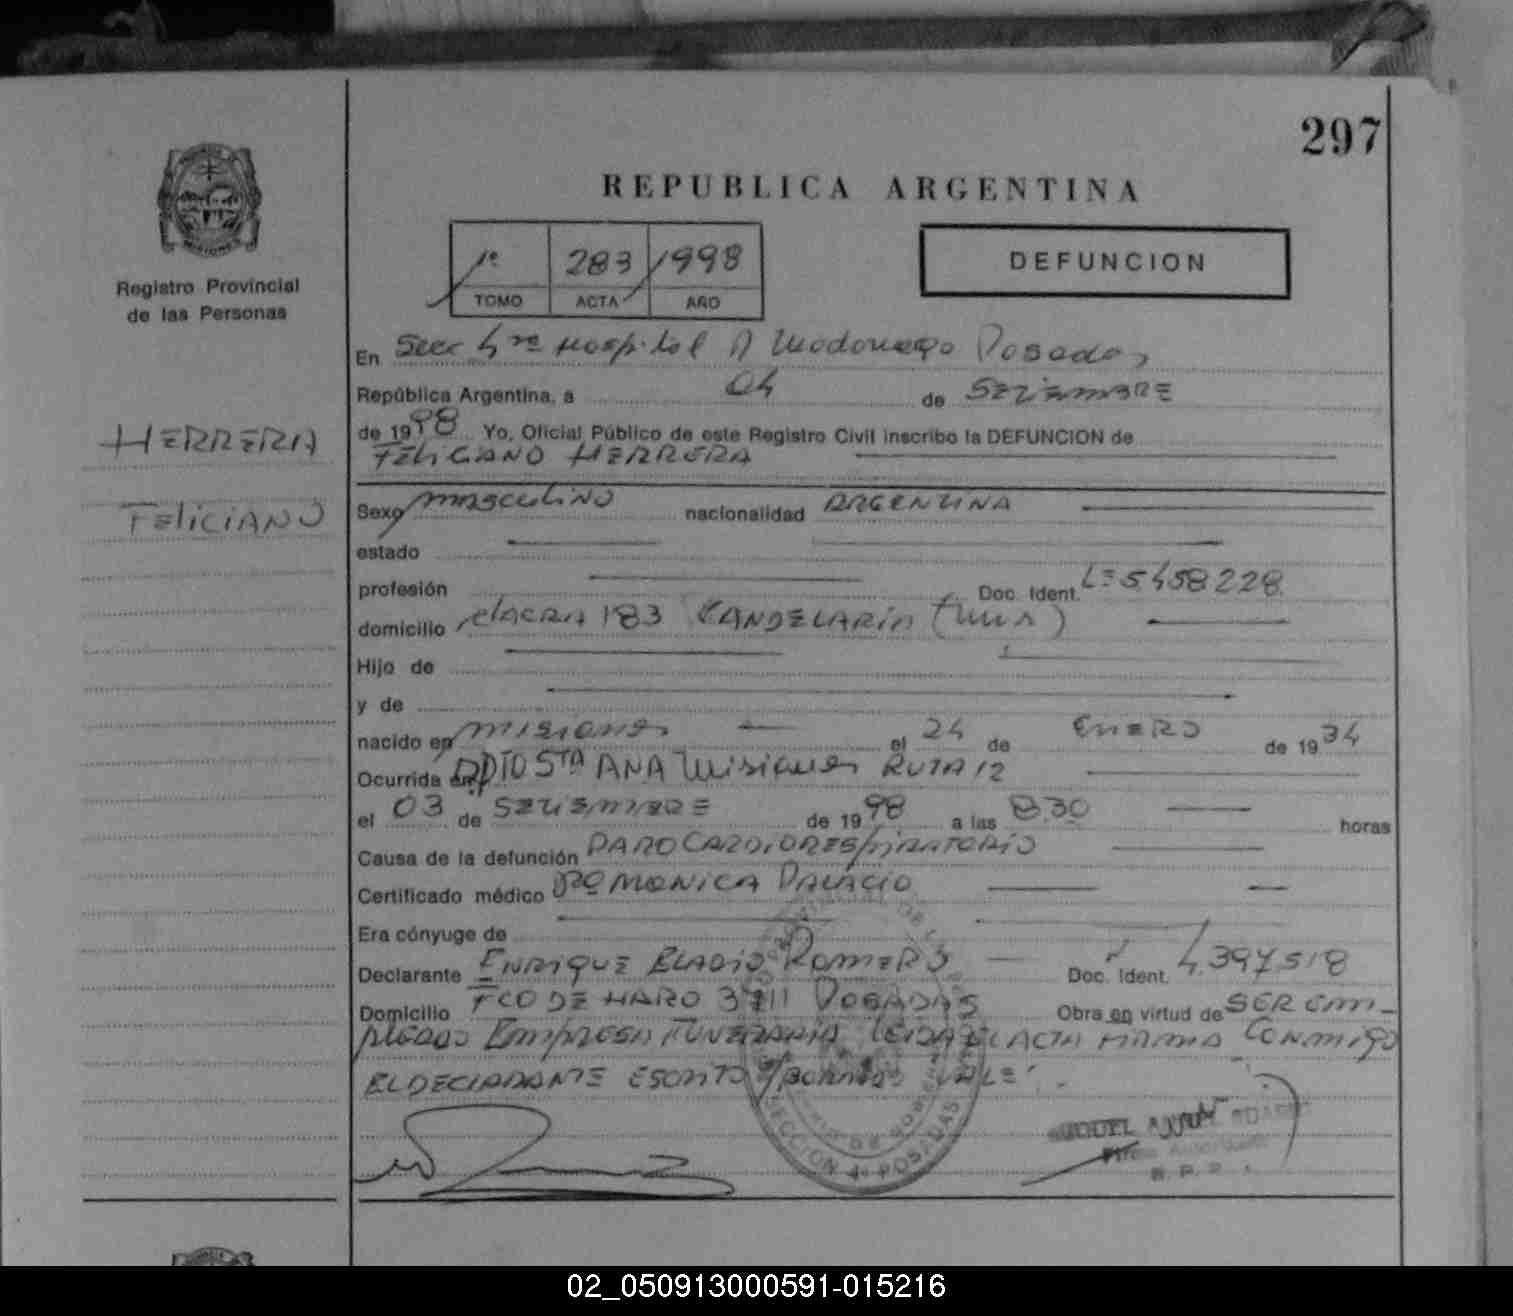 297
REPUBLICA ARGENTINA
1º 283 1998
TOMO ACTA AÑO
DEFUNCION
Registro Provincial
de las Personas
HERRERA
FELICIANO
En Secc 4ta Hospital R Madariaga Posadas
República Argentina, a 04 de SETIEMBRE
de 1998 Yo, Oficial Público de este Registro Civil inscribo la DEFUNCION de
FELICIANO HERRERA
Sexo masculino nacionalidad ARGENTINA
estado
profesión Doc. Ident. LE 5458228
domicilio chacra 183 CANDELARIA
Hijo de
y de
nacido en misiones el 24 de ENERO de 1934
Ocurrida en DTO STA ANA Misiones RUTA 12
el 03 de SETIEMBRE de 1998 a las 8.30 horas
Causa de la defunción PARO CARDIORESPIRATORIO
Certificado médico DRA MONICA PALACIO
Era cónyuge de
Declarante ENRIQUE ELADIO ROMERO Doc. Ident. 4.397518
Domicilio FCO DE HARO 3711 POSADAS Obra en virtud de SER EM-
PLEADO EMPRESA FUNERARIA LEIDA EL ACTA FIRMA CONMIGO
EL DECLARANTE ESCRITO S/BORRADO VALE
SECCION 4º POSADAS
R. P. P.
02_050913000591-015216